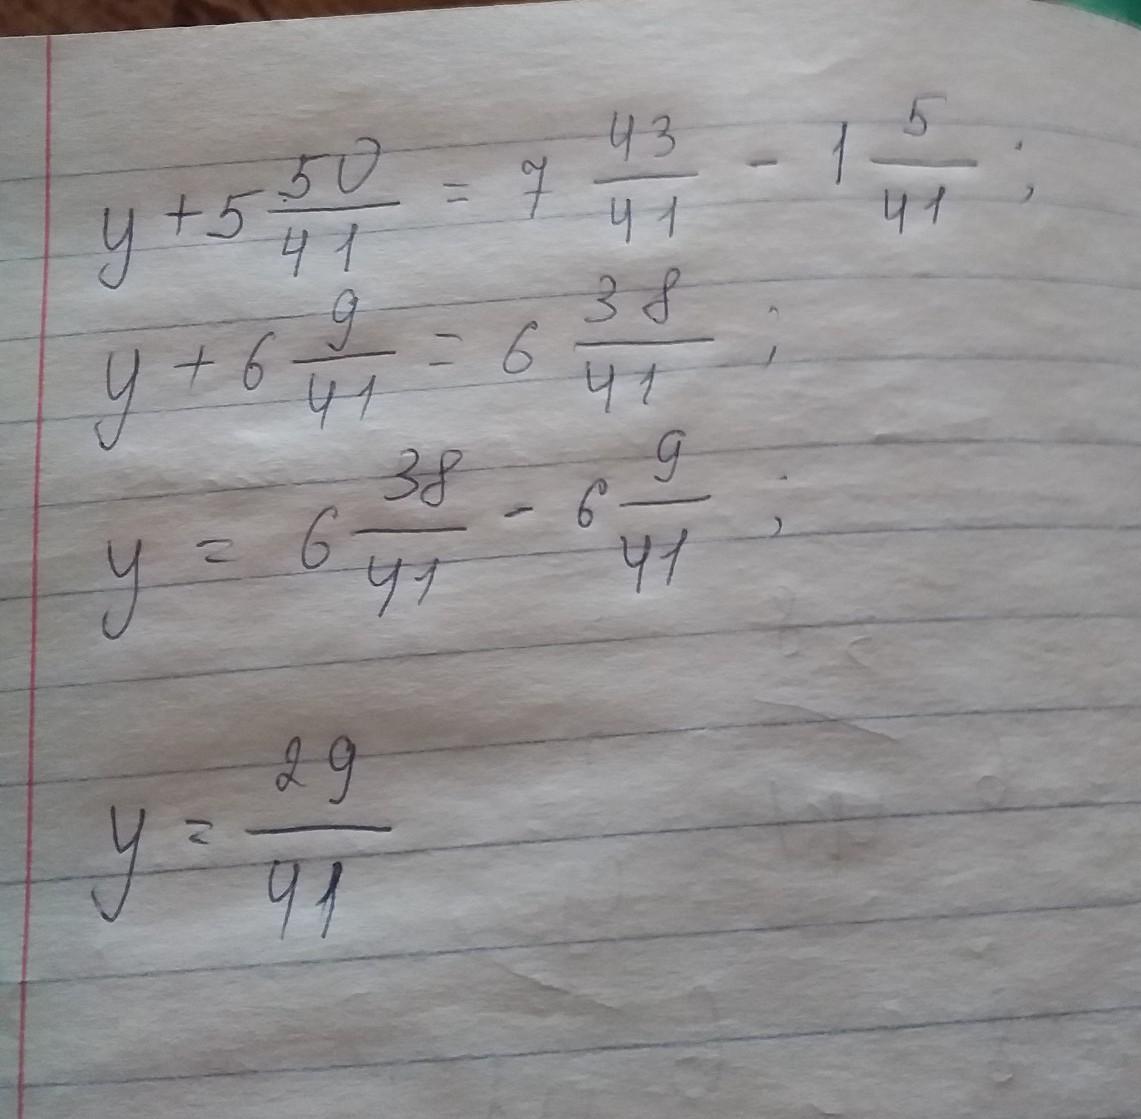 y + 5 50/41 = 7 43/41 - 1 5/41 ;
y + 6 9/41 = 6 38/41 ;
y = 6 38/41 - 6 9/41 ;
y = 29/41